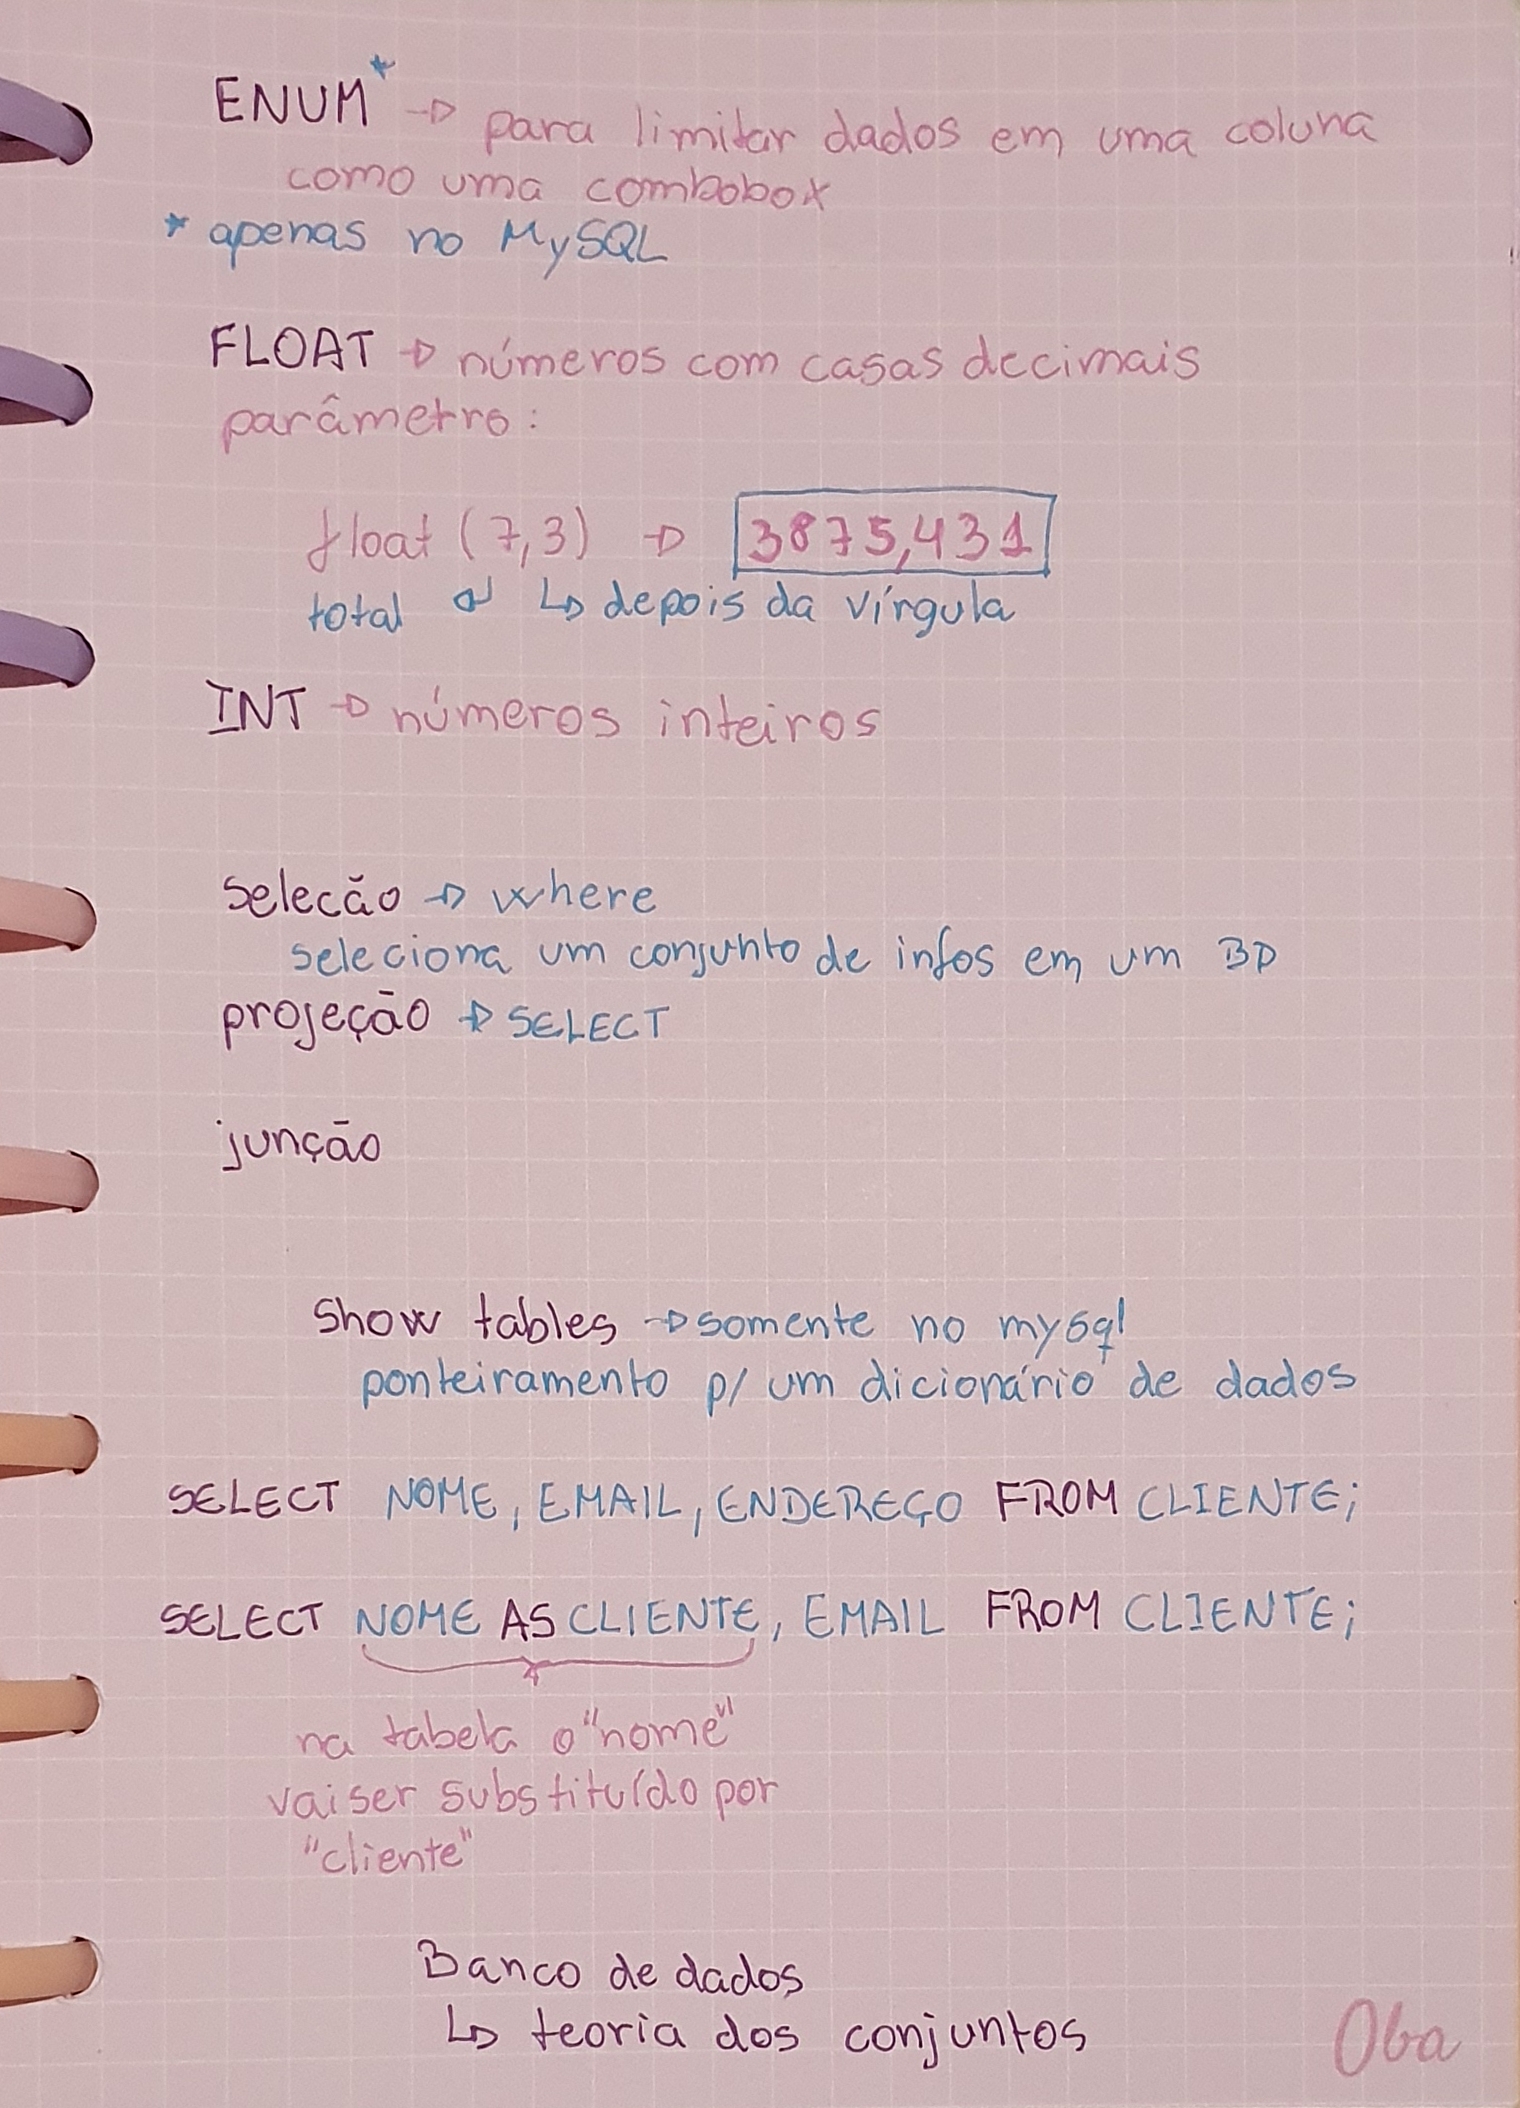 ENUM* → para limitar dados em uma coluna
como uma combobox
* apenas no MySQL
FLOAT → números com casas decimais
parâmetro:
float (7,3) → 3875,431
total ↲ ↳ depois da vírgula
INT → números inteiros
selecão → where
seleciona um conjunto de infos em um BD
projeção → SELECT
junção
Show tables → somente no mysql
ponteiramento p/ um dicionário de dados
SELECT NOME, EMAIL, ENDEREÇO FROM CLIENTE;
SELECT NOME AS CLIENTE, EMAIL FROM CLIENTE;
na tabela o "nome"
vai ser substituído por
"cliente"
Banco de dados
↳ teoria dos conjuntos
Oba